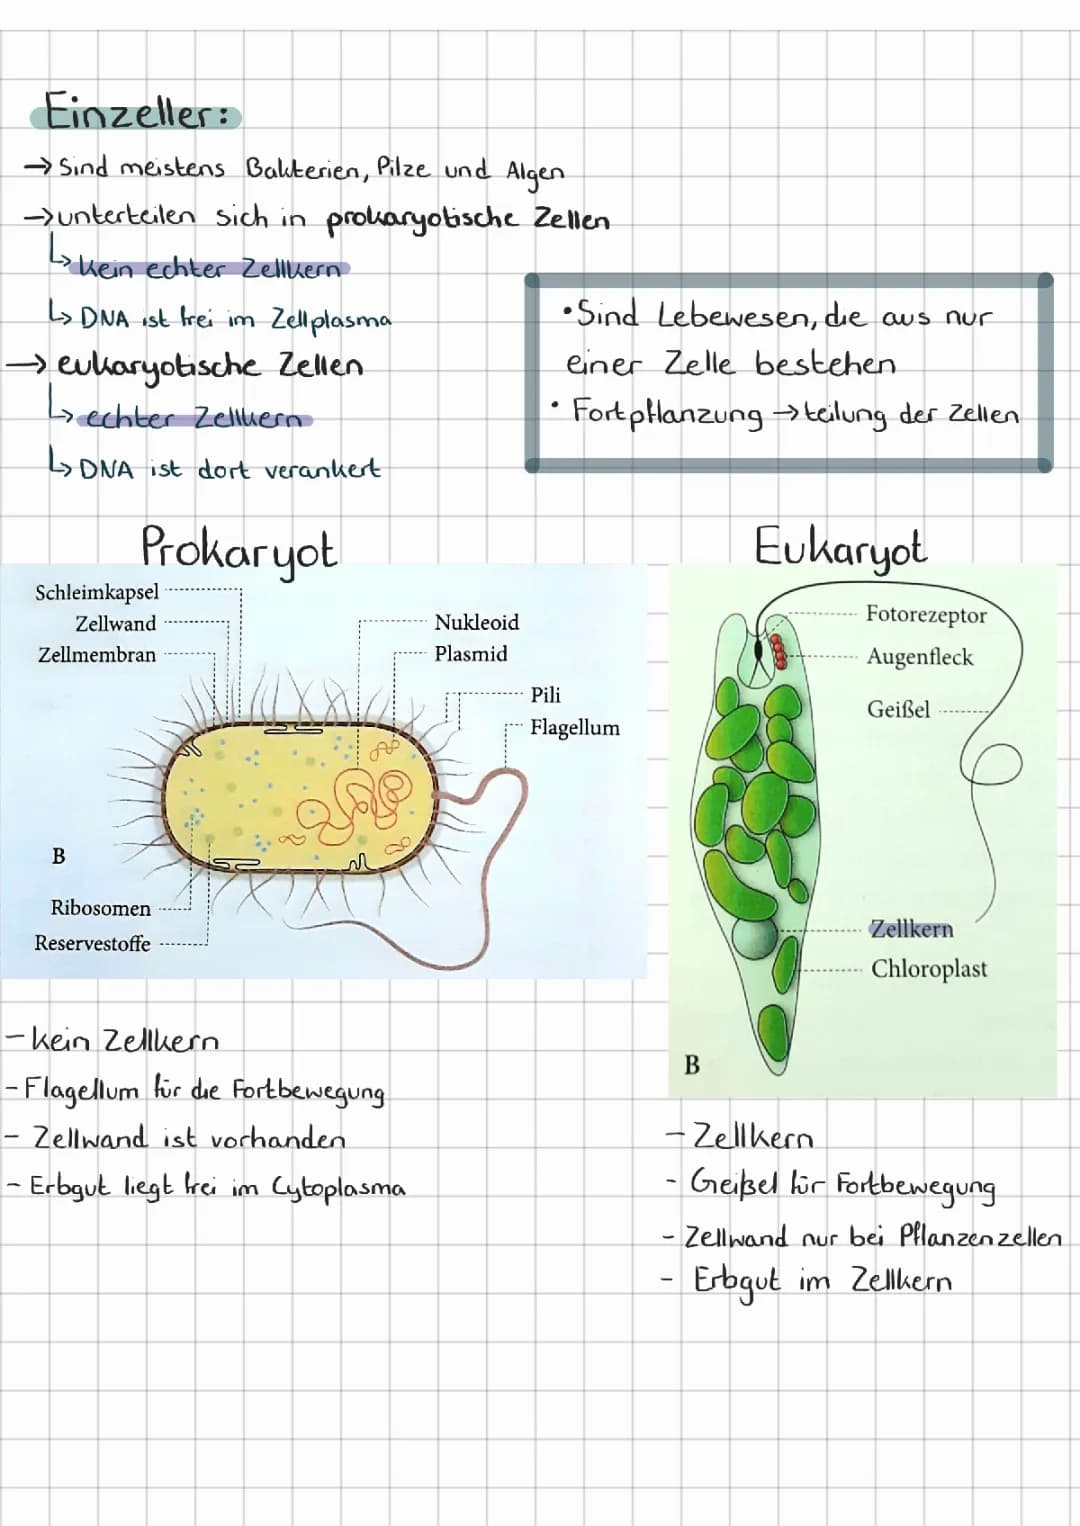 Einzeller:
→ Sind meistens Bakterien, Pilze und Algen
→ unterteilen sich in prokaryotische Zellen
↳ kein echter Zellkern
↳ DNA ist frei im Zellplasma
→ eukaryotische Zellen
↳ echter Zellkern
↳ DNA ist dort verankert
• Sind Lebewesen, die aus nur
einer Zelle bestehen
• Fortpflanzung → teilung der Zellen
Prokaryot
Schleimkapsel
Zellwand
Zellmembran
Nukleoid
Plasmid
Pili
Flagellum
B
Ribosomen
Reservestoffe
- kein Zellkern
- Flagellum für die Fortbewegung
- Zellwand ist vorhanden
- Erbgut liegt frei im Cytoplasma
Eukaryot
Fotorezeptor
Augenfleck
Geißel
Zellkern
Chloroplast
B
- Zellkern
- Geißel für Fortbewegung
- Zellwand nur bei Pflanzenzellen
- Erbgut im Zellkern